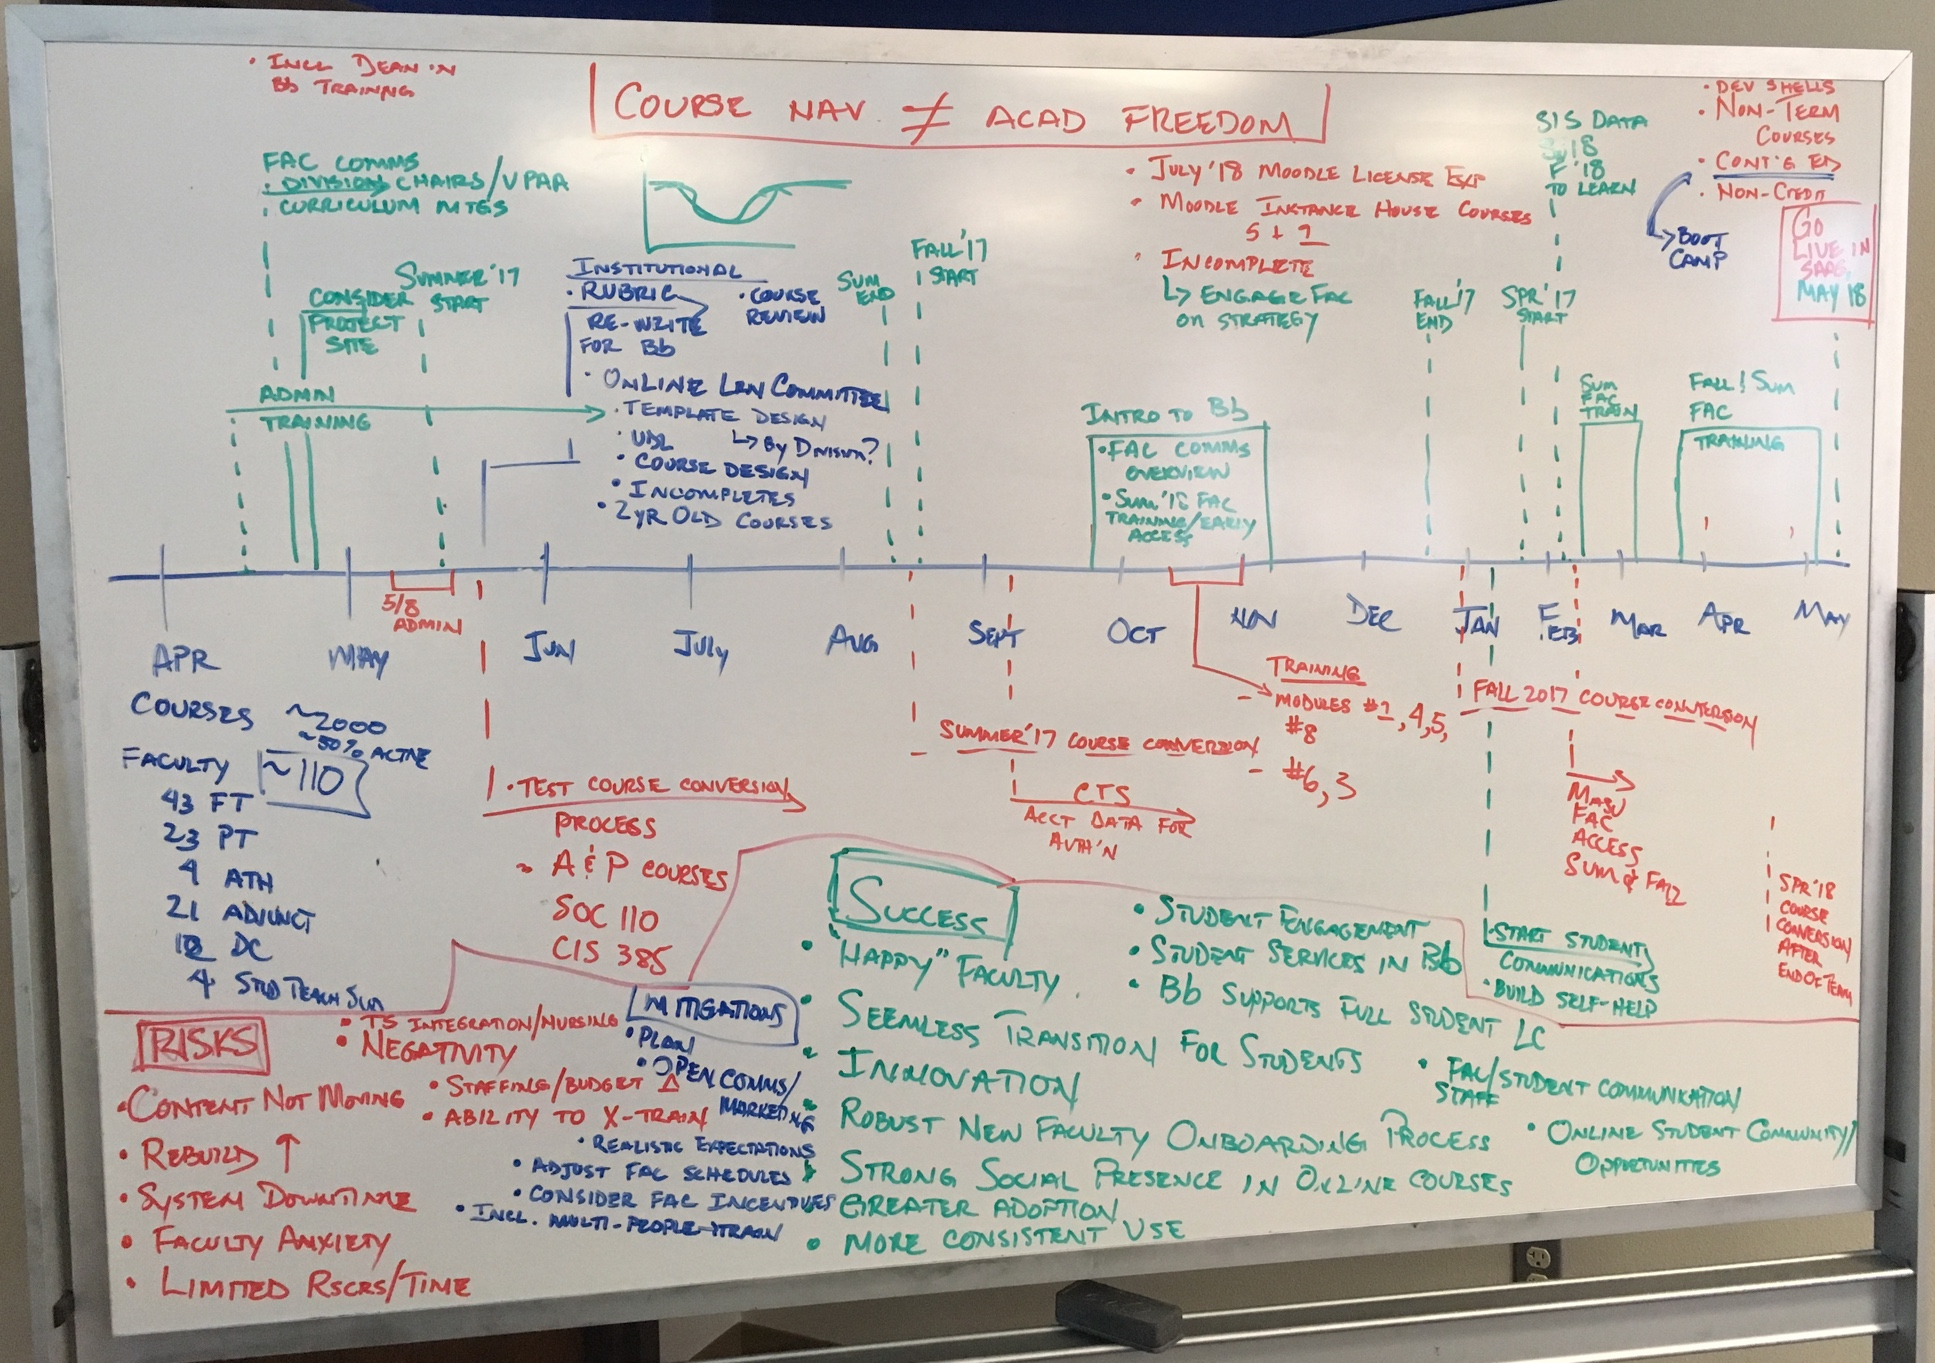 • INCL DEAN IN
Bb TRAINING
COURSE NAV ≠ ACAD FREEDOM
FAC COMMS
• DIVISION CHAIRS/VPAA
CURRICULUM MTGS
SUMMER '17
START
CONSIDER
PROJECT
SITE
ADMIN
TRAINING
INSTITUTIONAL
• RUBRIC
RE-WRITE
FOR Bb
• COURSE
REVIEW
• ONLINE LRN COMMITTEE
• TEMPLATE DESIGN
↳ BY DIVISION?
• UDL
• COURSE DESIGN
• INCOMPLETES
• 2YR OLD COURSES
SUM
END
FALL '17
START
• JULY '18 MOODLE LICENSE EXP
• MOODLE INSTANCE HOUSE COURSES
5 + ?
• INCOMPLETE
↳ ENGAGE FAC
ON STRATEGY
INTRO TO Bb
• FAC COMMS
OVERVIEW
• SUM '18 FAC
TRAINING/EARLY
ACCESS
FALL '17
END
SPR '17
START
SIS DATA
F '18
TO LEARN
• DEV SHELLS
• NON-TERM
COURSES
• CONT'G ED
• NON-CREDIT
BOOT
CAMP
GO
LIVE IN
SAAS
MAY 18
SUM
FAC
TRAIN
FALL! SUM
FAC
TRAINING
APR
MAY
JUN
JULY
AUG
SEPT
OCT
NOV
DEC
JAN
FEB
MAR
APR
MAY
5/8
ADMIN
COURSES ~2000
~50% ACTIVE
FACULTY ~110
43 FT
23 PT
4 ATH
21 ADJUNCT
DC
4 STUD TEACH SUP
• TEST COURSE CONVERSION
PROCESS
~ A & P COURSES
SOC 110
CIS 385
SUMMER '17 COURSE CONVERSION
CTS
ACCT DATA FOR
AUTH'N
TRAINING
- MODULES #2, 4, 5,
#8
- #6, 3
FALL 2017 COURSE CONVERSION
FAC
ACCESS
SUM & FALL
SPR '18
COURSE
CONVERSION
AFTER
END OF TERM
• START STUDENT
COMMUNICATIONS
• BUILD SELF-HELP
RISKS
• TS INTEGRATION/NURSING
• NEGATIVITY
• STAFFING/BUDGET △
• ABILITY TO X-TRAIN
• CONTENT NOT MOVING
• REBUILD ↑
• SYSTEM DOWNTIME
• FACULTY ANXIETY
• LIMITED RSCRS/TIME
MITIGATIONS
• PLAN
• OPEN COMMS/
MARKETING
• REALISTIC EXPECTATIONS
• ADJUST FAC SCHEDULES
• CONSIDER FAC INCENTIVES
• INCL. MULTI-PEOPLE-TRAIN
SUCCESS
• "HAPPY" FACULTY
• SEEMLESS TRANSITION FOR STUDENTS
• INNOVATION
• ROBUST NEW FACULTY ONBOARDING PROCESS
• STRONG SOCIAL PRESENCE IN ONLINE COURSES
GREATER ADOPTION
• MORE CONSISTENT USE
• STUDENT ENGAGEMENT
• STUDENT SERVICES IN Bb
• Bb SUPPORTS FULL STUDENT LC
• FAC/STUDENT COMMUNICATION
STAFF
• ONLINE STUDENT COMMUNITY/
OPPORTUNITIES